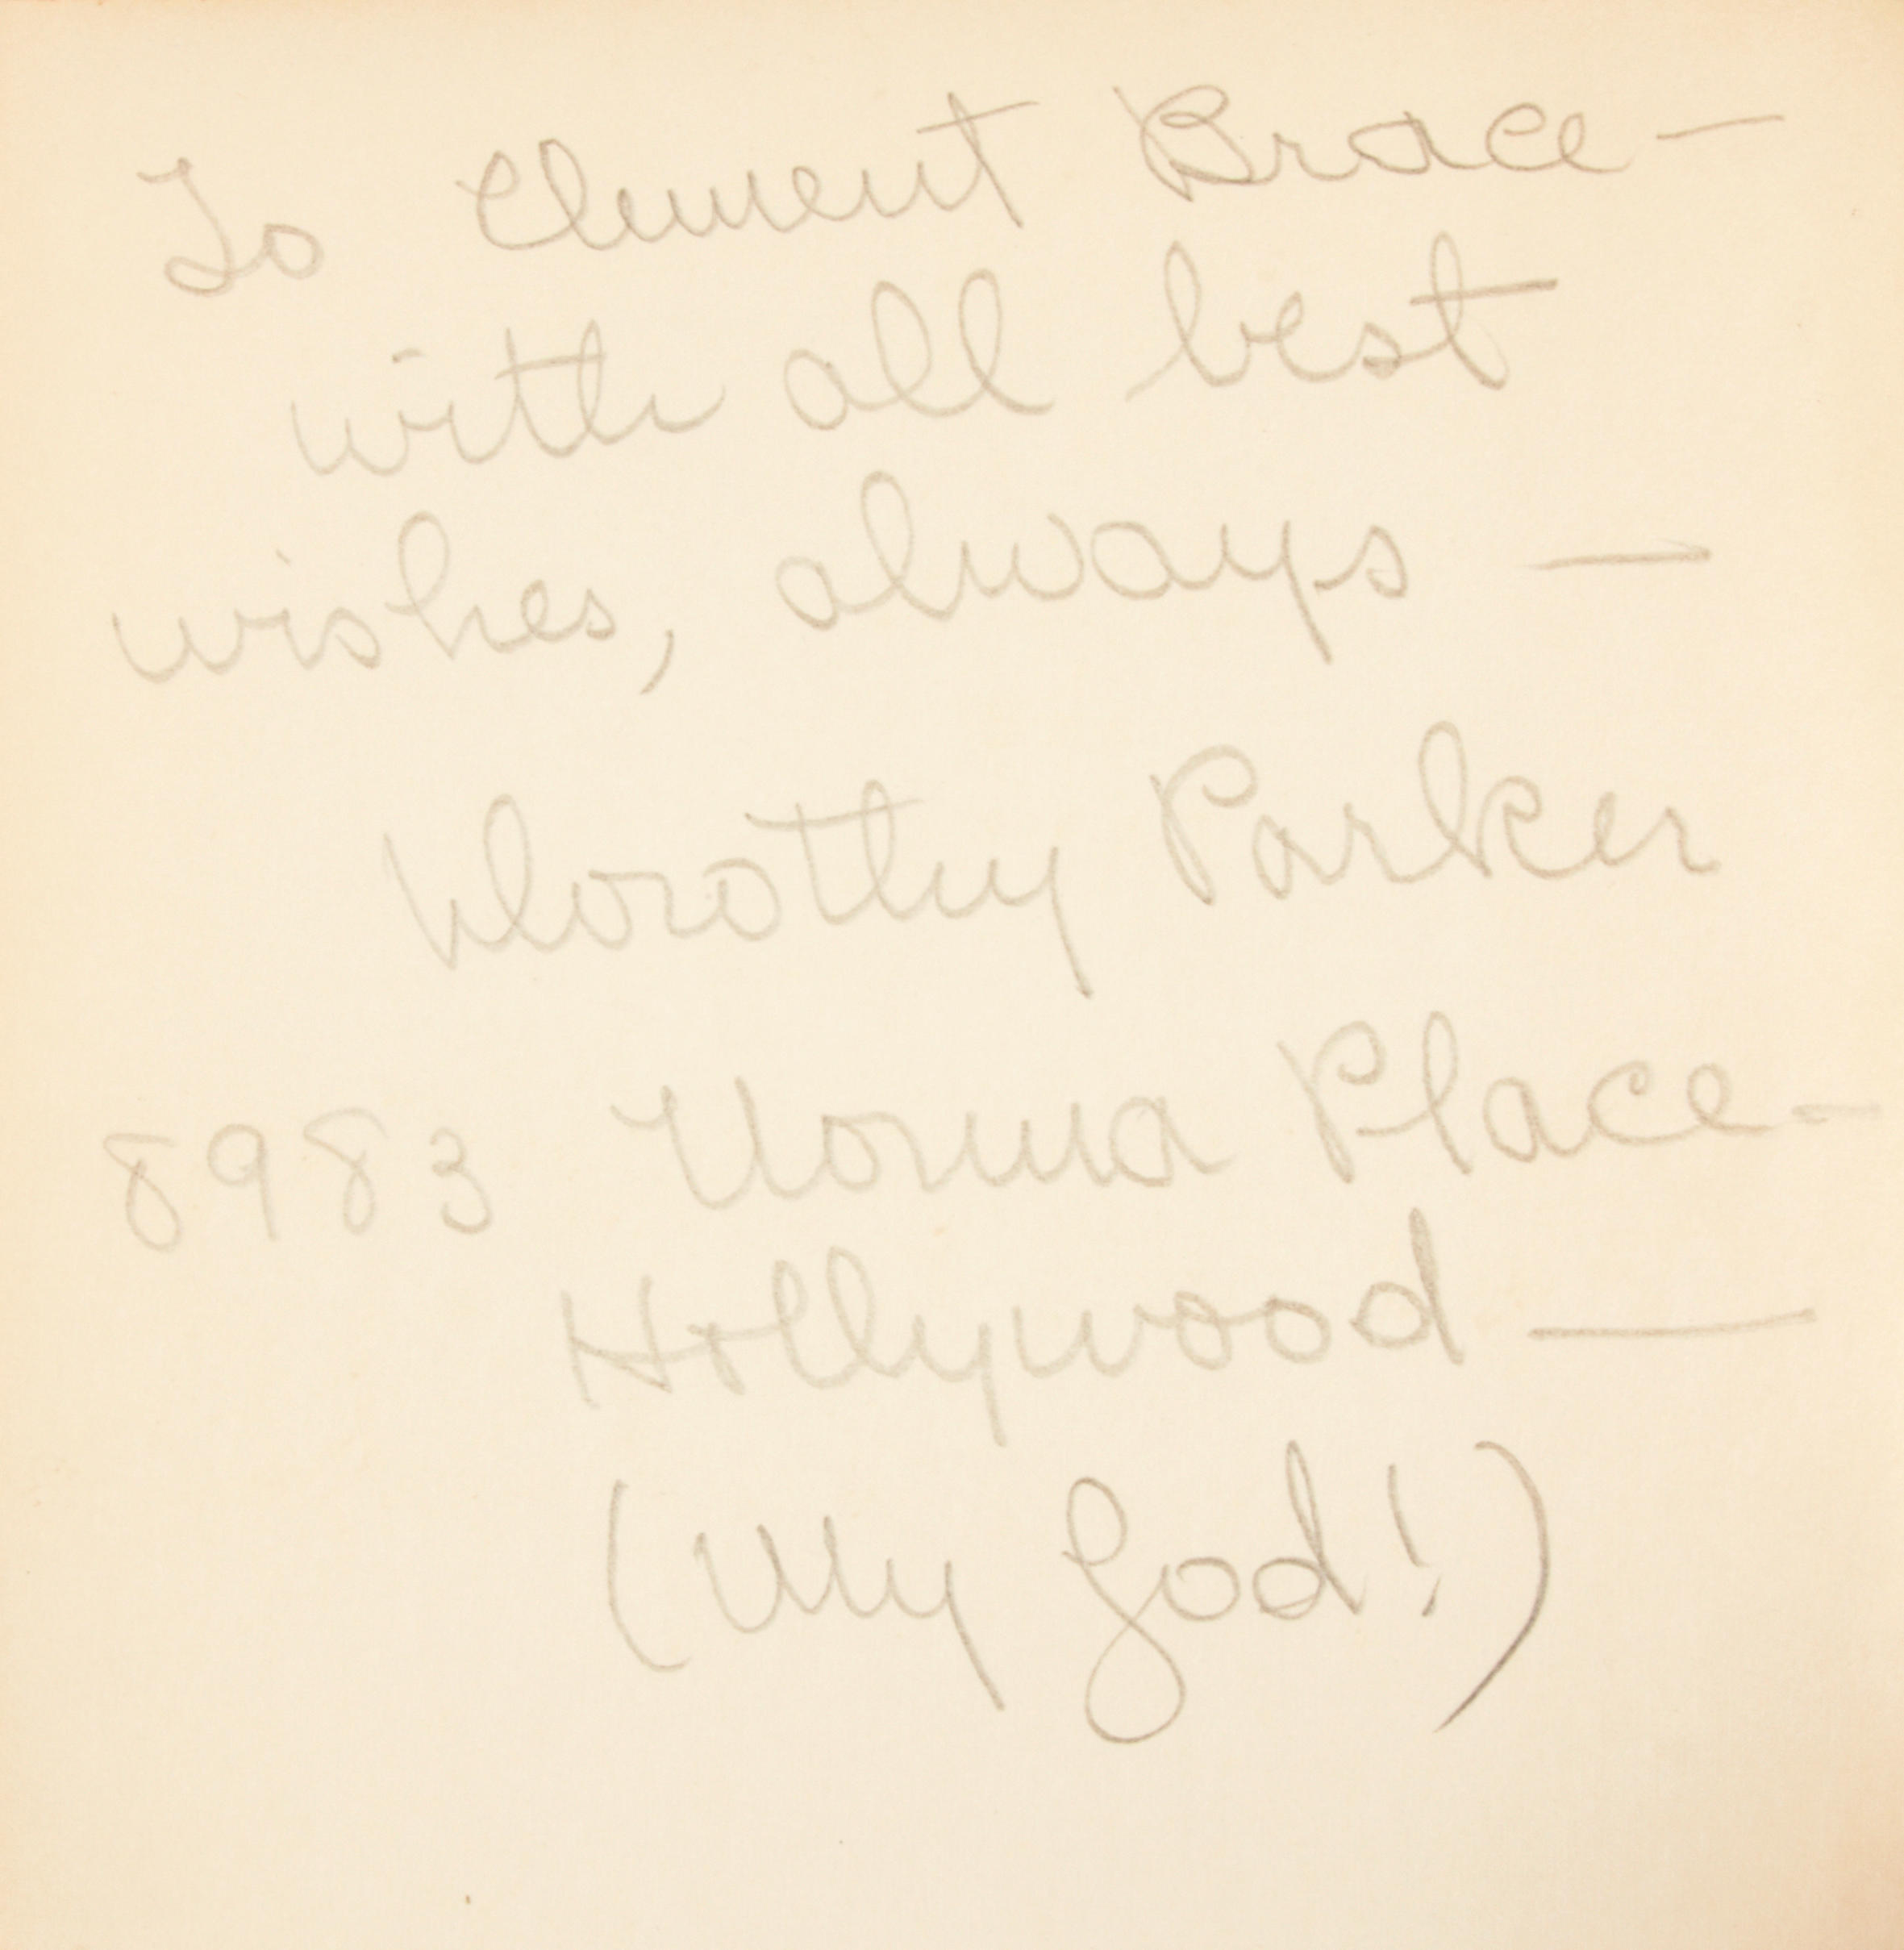 To Clement Brace —
with all best
wishes, always —
Dorothy Parker
8983 Norma Place —
Hollywood —
(My God!)